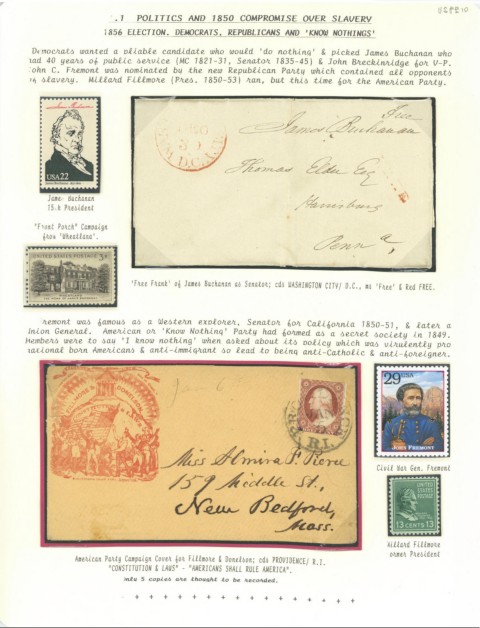 .1 POLITICS AND 1850 COMPROMISE OVER SLAVERY
1856 ELECTION. DEMOCRATS, REPUBLICANS AND 'KNOW NOTHINGS'
Democrats wanted a pliable candidate who would 'do nothing' & picked James Buchanan who
had 40 years of public service (MC 1821-31, Senator 1835-45) & John Breckinridge for V-P.
John C. Fremont was nominated by the new Republican Party which contained all opponents
of slavery. Millard Fillmore (Pres. 1850-53) ran, but this time for the American Party.
USA22
James Buchanan
15.h President
"Front Porch" Campaign
from 'Wheatland'.
UNITED STATES POSTAGE
3¢
Free
James Buchanan
Thomas Elder Esq
Harrisburg
Penn a,
'Free Frank' of James Buchanan as Senator; cds WASHINGTON CITY/ D.C., ms 'Free' & Red FREE.
remont was famous as a Western explorer, Senator for California 1850-51, & later a
Union General. American or 'Know Nothing' Party had formed as a secret society in 1849.
Members were to say 'I know nothing' when asked about its policy which was virulently pro
national born Americans & anti-immigrant so lead to being anti-Catholic & anti-foreigner.
R.I.
Miss Almira F.
159 Middle St.,
New Bedford,
Mass.
29
JOHN FRÉMONT
Civil War Gen. Fremont
13 CENTS 13
illard Fillmore
ormer President
American Party Campaign Cover for Fillmore & Donelson; cds PROVIDENCE/ R.I.
"CONSTITUTION & LAWS" - "AMERICANS SHALL RULE AMERICA".
Only 5 copies are thought to be recorded.
+ + + + + + + + + + + + + + +